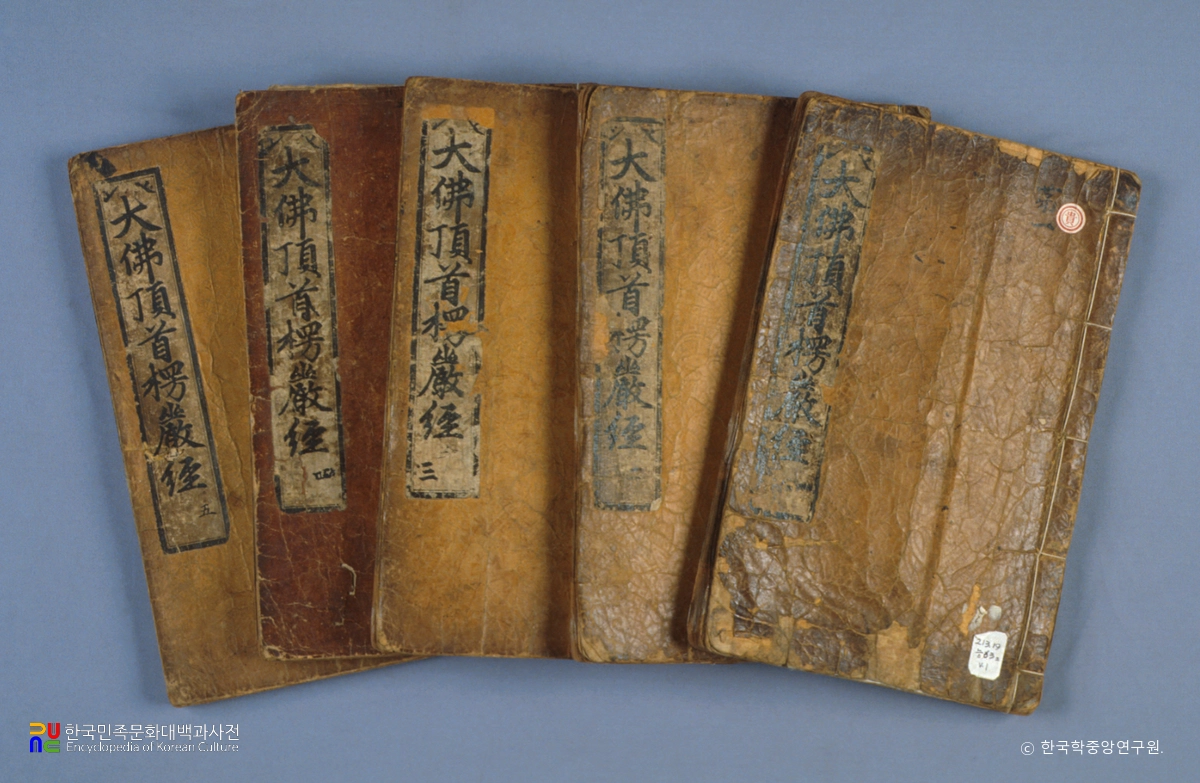 大佛頂首楞嚴經 五
大佛頂首楞嚴經 四
大佛頂首楞嚴經 三
大佛頂首楞嚴經
大佛頂首楞嚴經
한국민족문화대백과사전
Encyclopedia of Korean Culture
© 한국학중앙연구원.